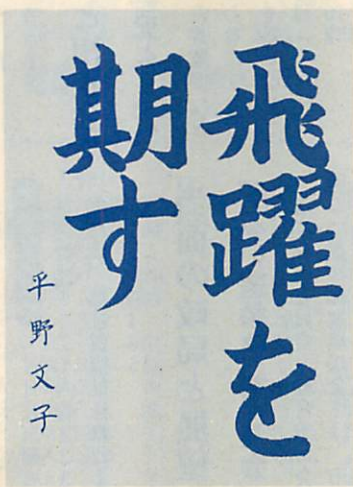 飛躍を
期す
平野文子